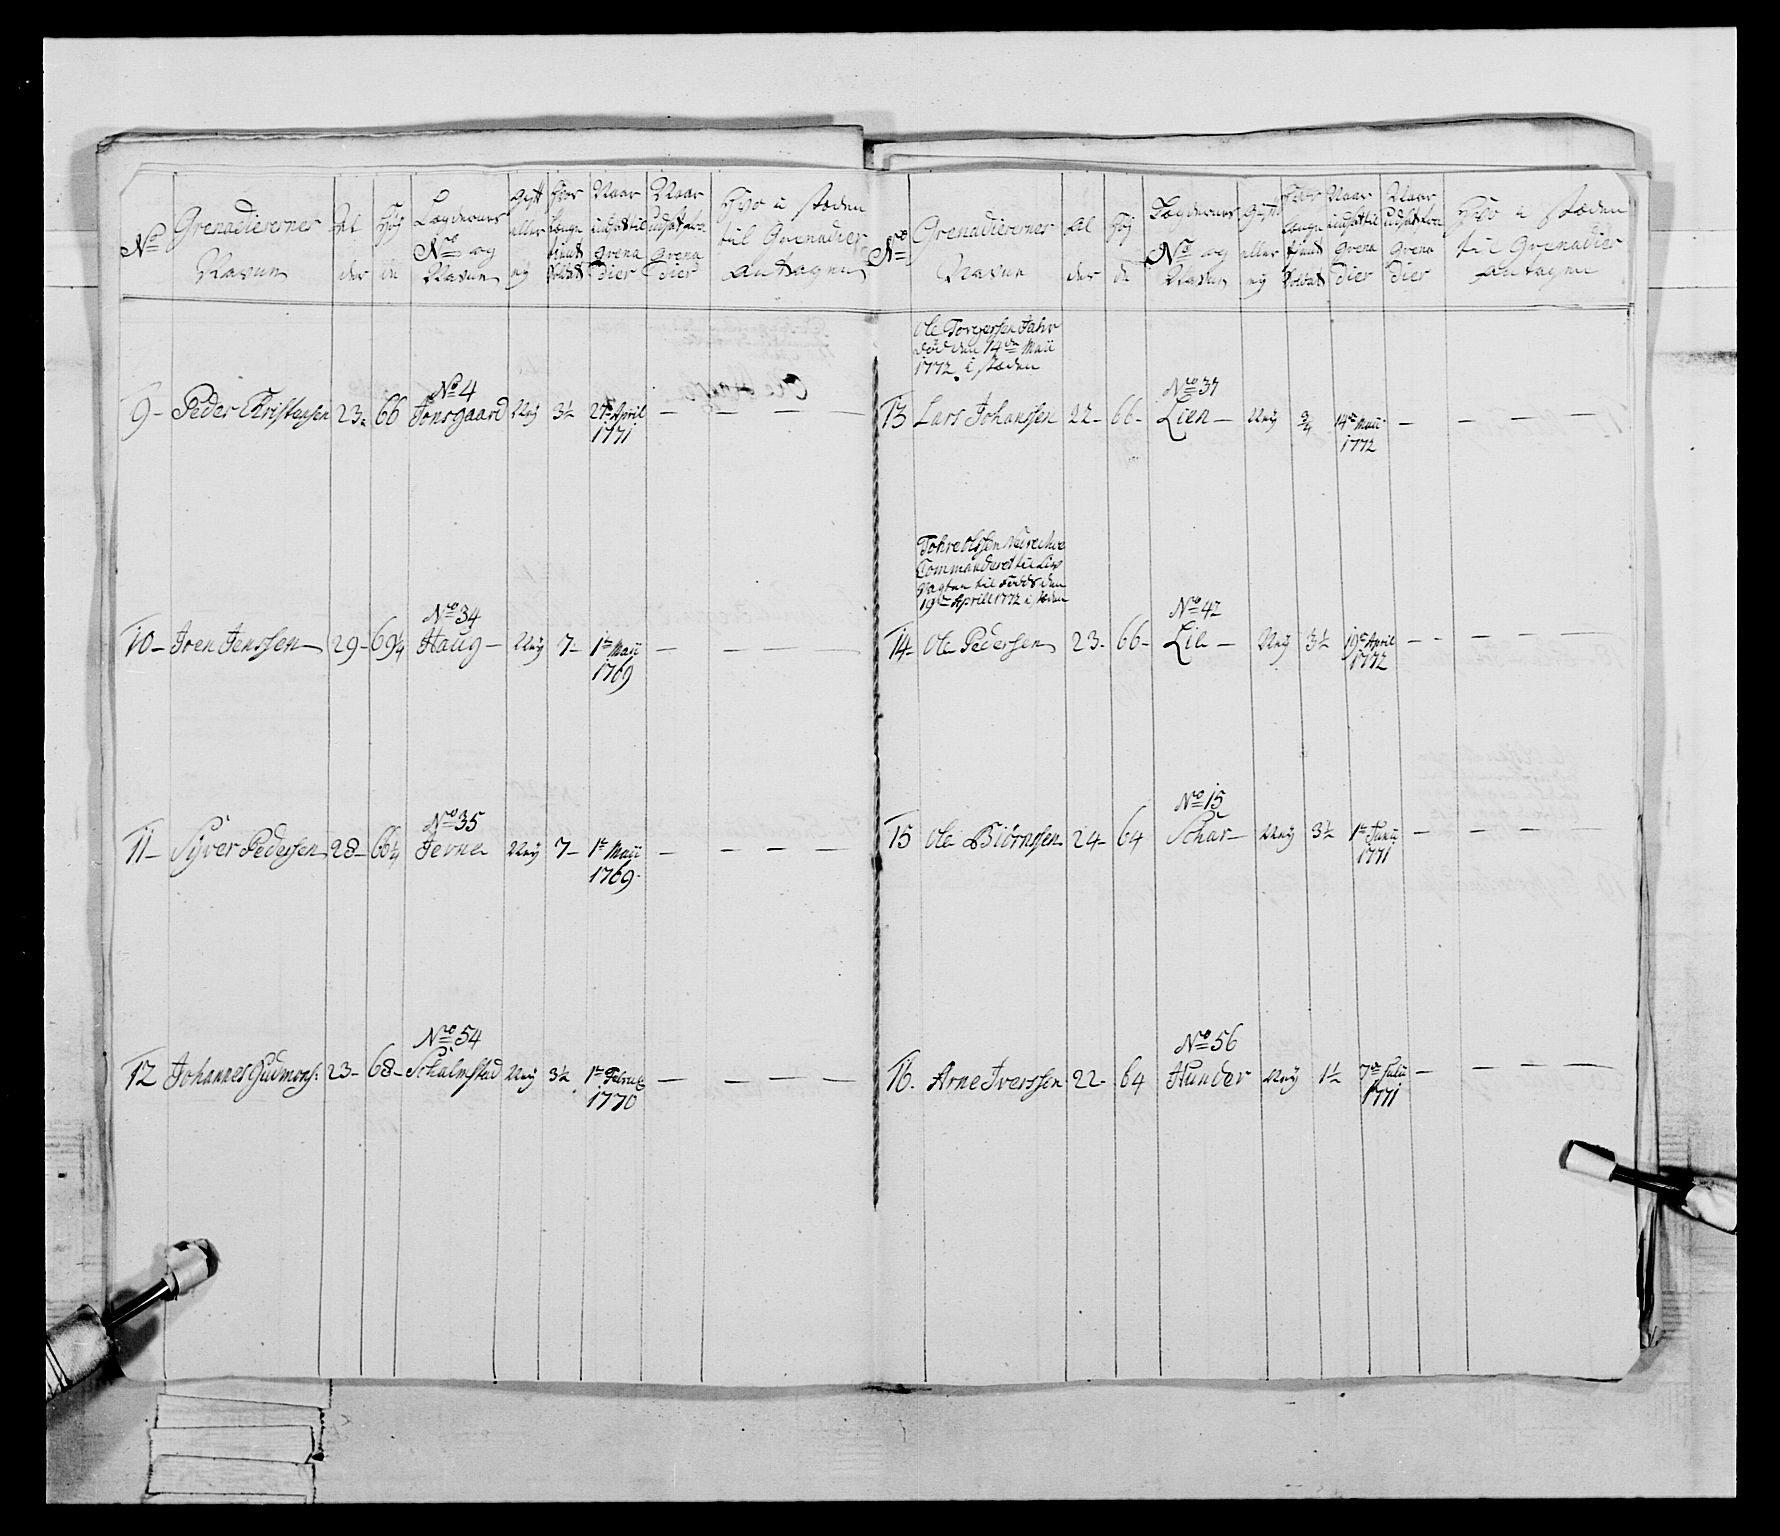 No
Grenadierernes
Navne
Al
der
Høy
de
Lægdernes
No og
Navne
Gift
eller
ey
Hvor
Længe
tient
Soldat
Naar
udsat til
Grena
dier
Naar
udsat
Grena
dier
Hvo i stæden
til Grenadier
antagen
9 – Peder Christensen 23 – 66 No 4 Tonsgaard Uey 3½ 27e April 1771 – – – –
10 – Iver Jenssen – 29 – 69¼ No 34 Haug – Uey 7 – 1te Maii 1769 – – – –
11 – Syver Pedersen 28 – 66¼ No 35 Tevne Uey 7 – 1te Maii 1769 – – – –
12 Johannes Gudmons: 23 – 68 – No 54 Schalmstad Uey 3½ 1te Febru: 1770 – – – –
No
Grenadierernes
Navne
Al
der
Høy
de
Lægdernes
No og
Navne
Gift
eller
ey
Hvor
Længe
tient
Soldat
Naar
udsat til
Grena
dier
Naar
udsat
Grena
dier
Hvo i stæden
til Grenadier
antagen
Ole Torgersen
død den 14de Maii
1772. i stæden
13 Lars Johanssen 22 – 66 – No 37 Lien – Uey ¾ 14de Maii 1772 – – – –
Tohre Olssen
Commanderet til Liv
Vagten til Fods den
19de April 1772 i stæden
14 – Ole Pedersen 23 – 66 – No 42 Lie – Uey 3½ 19de April 1772 – – – –
15 Ole Biørnssen 24 – 64 No 15 Schar – Uey 3½ 1te 1771 – – – –
16. Arne Iverssen 22 – 64 No 56 Hunder Uey 1½ 7de Julii 1771 – – – –